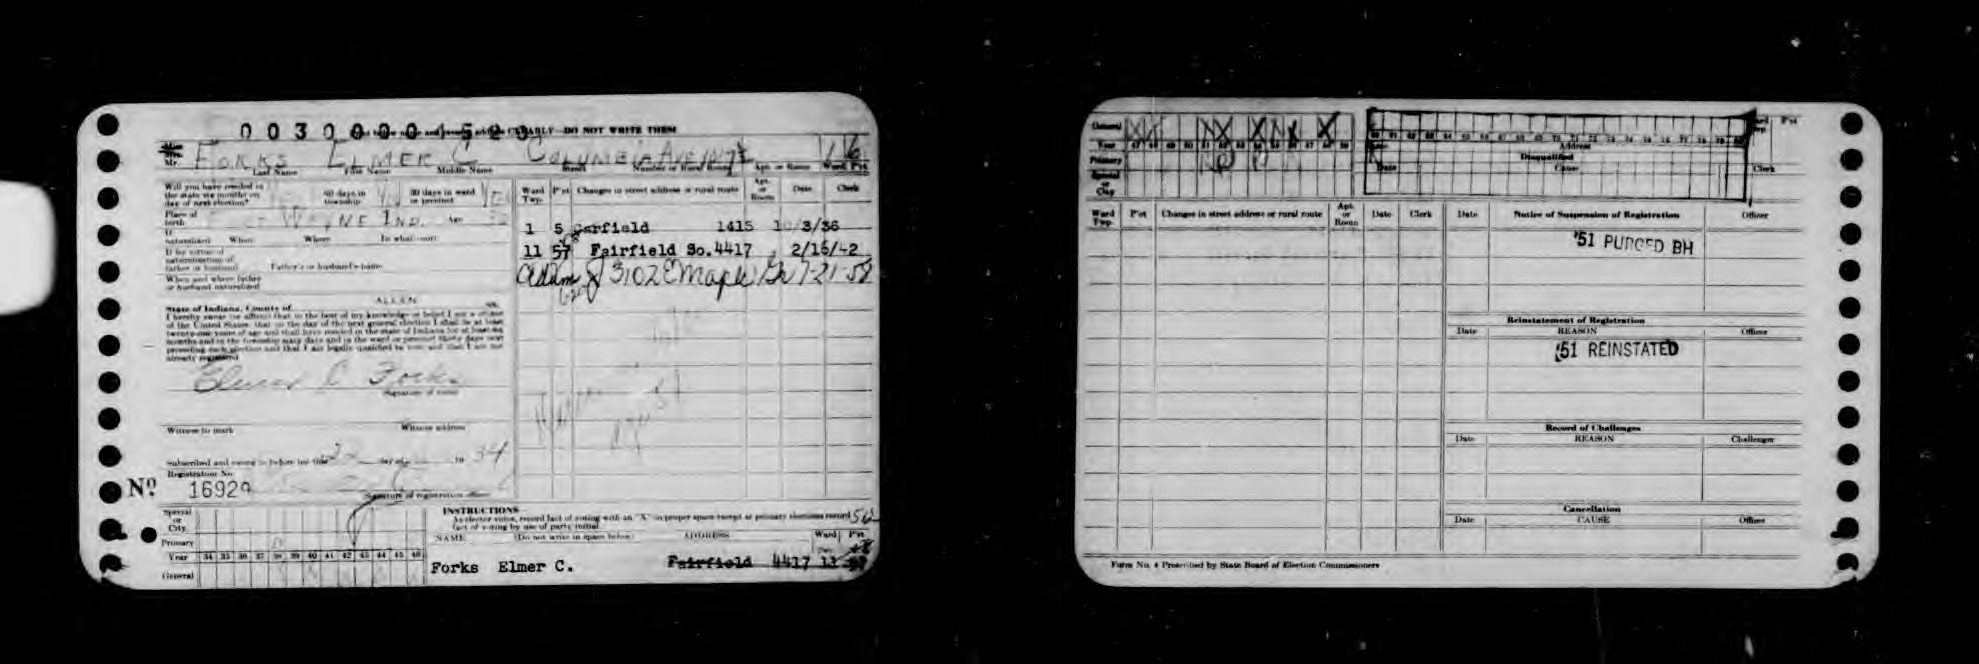 0030000
CLEARLY—DO NOT WRITE THEM
Mrs.
Mr. FORKS ELMER C COLUMBIA AVE 1 6
Last Name First Name Middle Name Street Number or Rural Route Apt. or Room Ward Pct.
Will you have resided in
the state six months on
day of next election? 60 days in township 30 days in ward or precinct
Place of birth WAYNE IND. Age
If naturalized When Where In what court
If by virtue of
naturalization of
father or husband Father's or husband's name
When and where father
or husband naturalized
Ward Twp. P'ct Changes in street address or rural route Apt. or Room Date Clerk
1 5 Garfield 1415 10/3/36
11 57 Fairfield So. 4417 2/16/42
Adams 3102 E Maple Gr 7-21-58
ALLEN
State of Indiana, County of ss.
I hereby swear (or affirm) that to the best of my knowledge or belief I am a citizen
of the United States; that on the day of the next general election I shall be at least
twenty-one years of age and shall have resided in the state of Indiana for at least six
months and in the township sixty days and in the ward or precinct thirty days next
preceding such election and that I am legally qualified to vote and that I am not
already registered
Elmer C Forks
Signature of voter
Witness to mark Witness address
Subscribed and sworn to before me this 22 19 34
Registration No.
Nº 16929
Signature of registration officer
Special or City
Primary
Year 34 35 36 37 38 39 40 41 42 43 44 45 46
General
INSTRUCTIONS
As elector votes, record fact of voting with an "X" in proper space except at primary elections record
fact of voting by use of party initial.
NAME (Do not write in space below) ADDRESS Ward P'ct
Forks Elmer C. Fairfield 4417 11
General X X N X X N X X
Year 47 48 49 50 51 52 53 54 55 56 57 58 59
Primary
Special or City
60 61 62 63 64 65 66 67 68 69 70 71 72 73 74 75 76 77 78 79 80
Address
Disqualified
Date Cause
P'ct
Clerk
Ward Twp. P'ct Changes in street address or rural route Apt. or Room Date Clerk
Date Notice of Suspension of Registration Officer
'51 PURGED BH
Reinstatement of Registration
Date REASON Officer
'51 REINSTATED
Record of Challenges
Date REASON Challenger
Cancellation
Date CAUSE Officer
Form No. 4 Prescribed by State Board of Election Commissioners